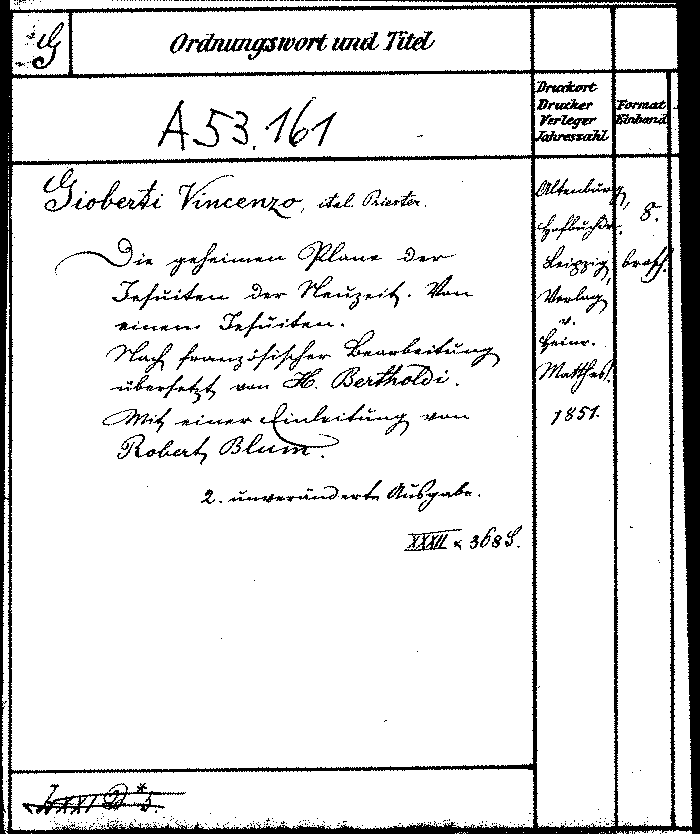 G
Ordnungswort und Titel
Druckort
Drucker
Verleger
Jahreszahl
Format
Einband
A 53.161
Gioberti Vincenzo, ital. Priester.
Die geheimen Plane der
Jesuiten der Neuzeit. Von
einem Jesuiten.
Nach französischer Bearbeitung
übersetzt von H. Bertholdi.
Mit einer Einleitung von
Robert Blum.
2. unveränderte Ausgabe.
XXXII & 368 S.
Altenburg,
Hofbuchdr.
Leipzig,
Verlag
v.
Heinr.
Matthes.
1851.
8.
brosch.